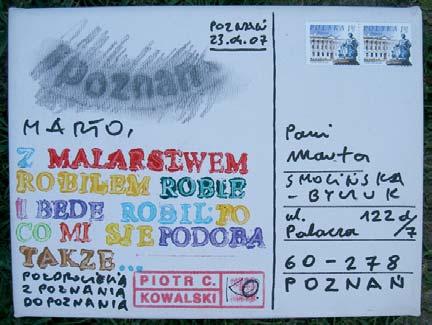 POZNAŃ
23.04.07
POLSKA
POLSKA
poznań
MARTO,
Z MALARSTWEM
ROBIŁEM ROBIE
I BEDE ROBIŁ TO
CO MI SIE PODOBA
TAKŻE...
POZDROWIENIA
Z POZNANIA
DO POZNANIA
PIOTR C.
KOWALSKI
Pani
Marta
SMOLIŃSKA
- BYCZUK
ul. 122d
Palacza /7
60-278
POZNAŃ